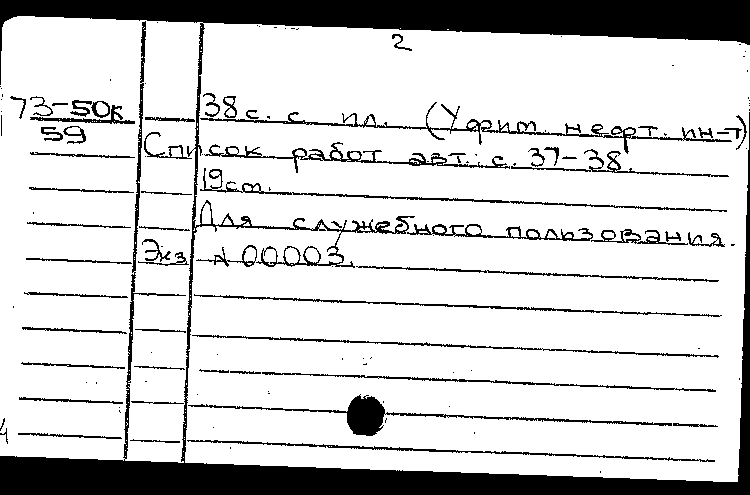 2
73-50к 38с. с ил. (Уфим. нефт. ин-т)
59
Список работ авт.: с. 37-38.
19см.
Для служебного пользования.
Экз №00003.
4